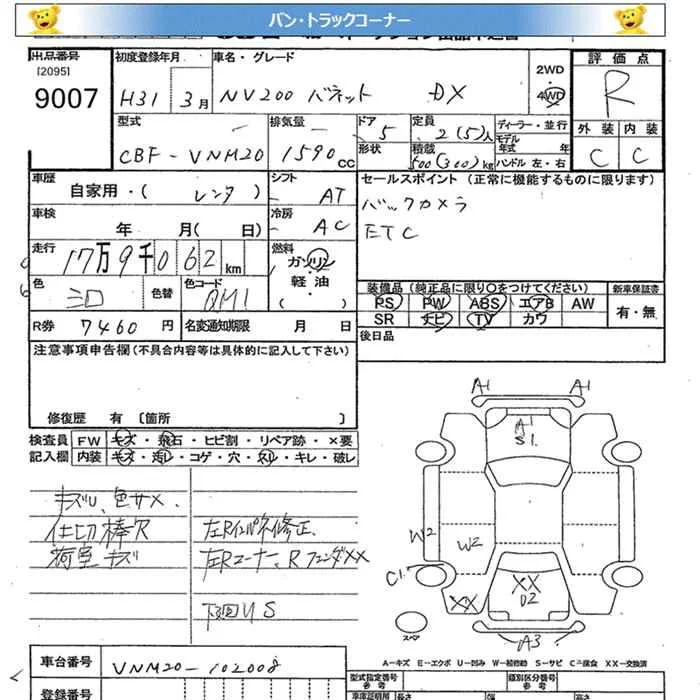 バン・トラックコーナー
出品番号
[2095]
9007
初度登録年月
H31 3月
車名・グレード
NV200 バネット DX
2WD
4WD
評価点
R
外装 内装
C C
型式
CBF-VNM20
排気量
1590cc
ドア
5
形状
定員
2(5)人
積載
500(300)kg
ディーラー・並行
モデル
年式 年
ハンドル 左・右
車歴
自家用・( レンタ )
シフト
AT
車検
年 月( 日)
冷房
AC
走行
17万9千062km
燃料
ガソリン
軽油
( ・ )
色
シロ
色替
色コード
QM1
R券 7460円
名変通知期限 月 日
セールスポイント (正常に機能するものに限ります)
バックカメラ
ETC
装備品 (純正品に限り○をつけてください)
PS PW ABS エアB AW
SR ナビ TV カワ
新車保証書
有・無
後日品
注意事項申告欄 (不具合内容等は具体的に記入して下さい)
修復歴 有 〔箇所 〕
検査員
記入欄
FW キズ・飛石・ヒビ割・リペア跡・×要
内装 キズ・汚レ・コゲ・穴・スレ・キレ・破レ
キズU、色サメ、
仕切棒欠
荷室キズ
左Rインパネ修正、
左Rコーナー、RフェンダXX
下回US
A1 A1
A1
S1
W2
W2
C1
XX
XX
D2
A3
スペア
A-キズ E-エクボ U-凹み W-補修跡 S-サビ C-腐食 XX-交換済
車台番号
VNM20-102008
登録番号
型式指定番号
参考
類別区分番号
参考
車庫証明用
長さ 幅 高さ